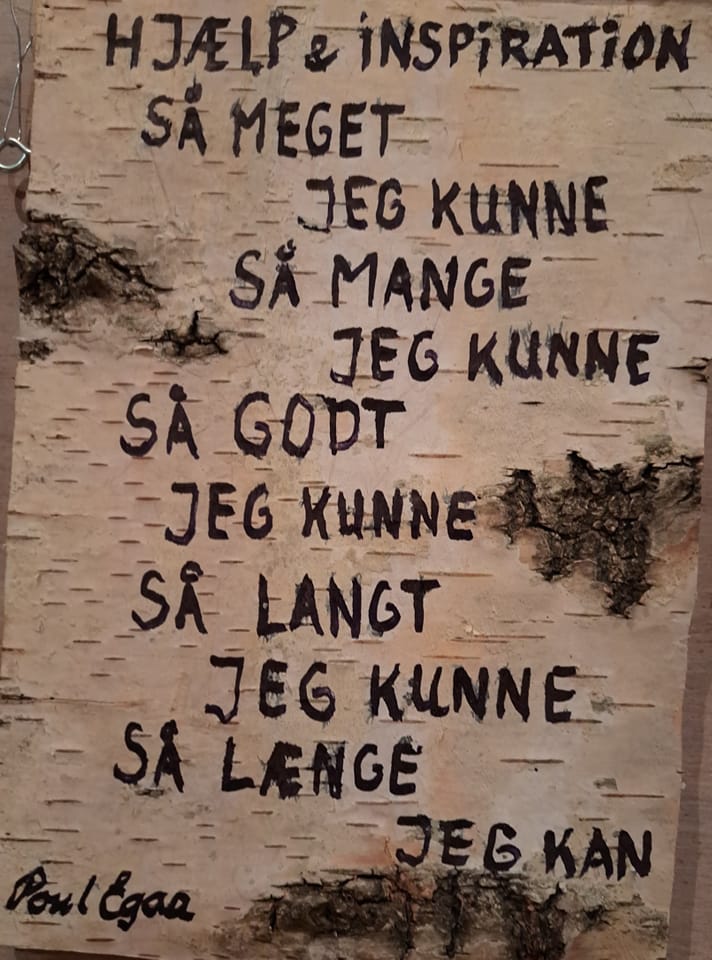 HJÆLP & iNSPiRATiON
SÅ MEGET
JEG KUNNE
SÅ MANGE
JEG KUNNE
SÅ GODT
JEG KUNNE
SÅ LANGT
JEG KUNNE
SÅ LÆNGE
JEG KAN
Poul Egaa